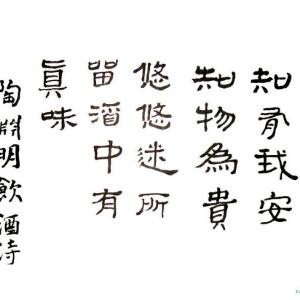 知有我安
知物為貴
悠悠迷所
留酒中有
眞味
陶淵明飲酒詩